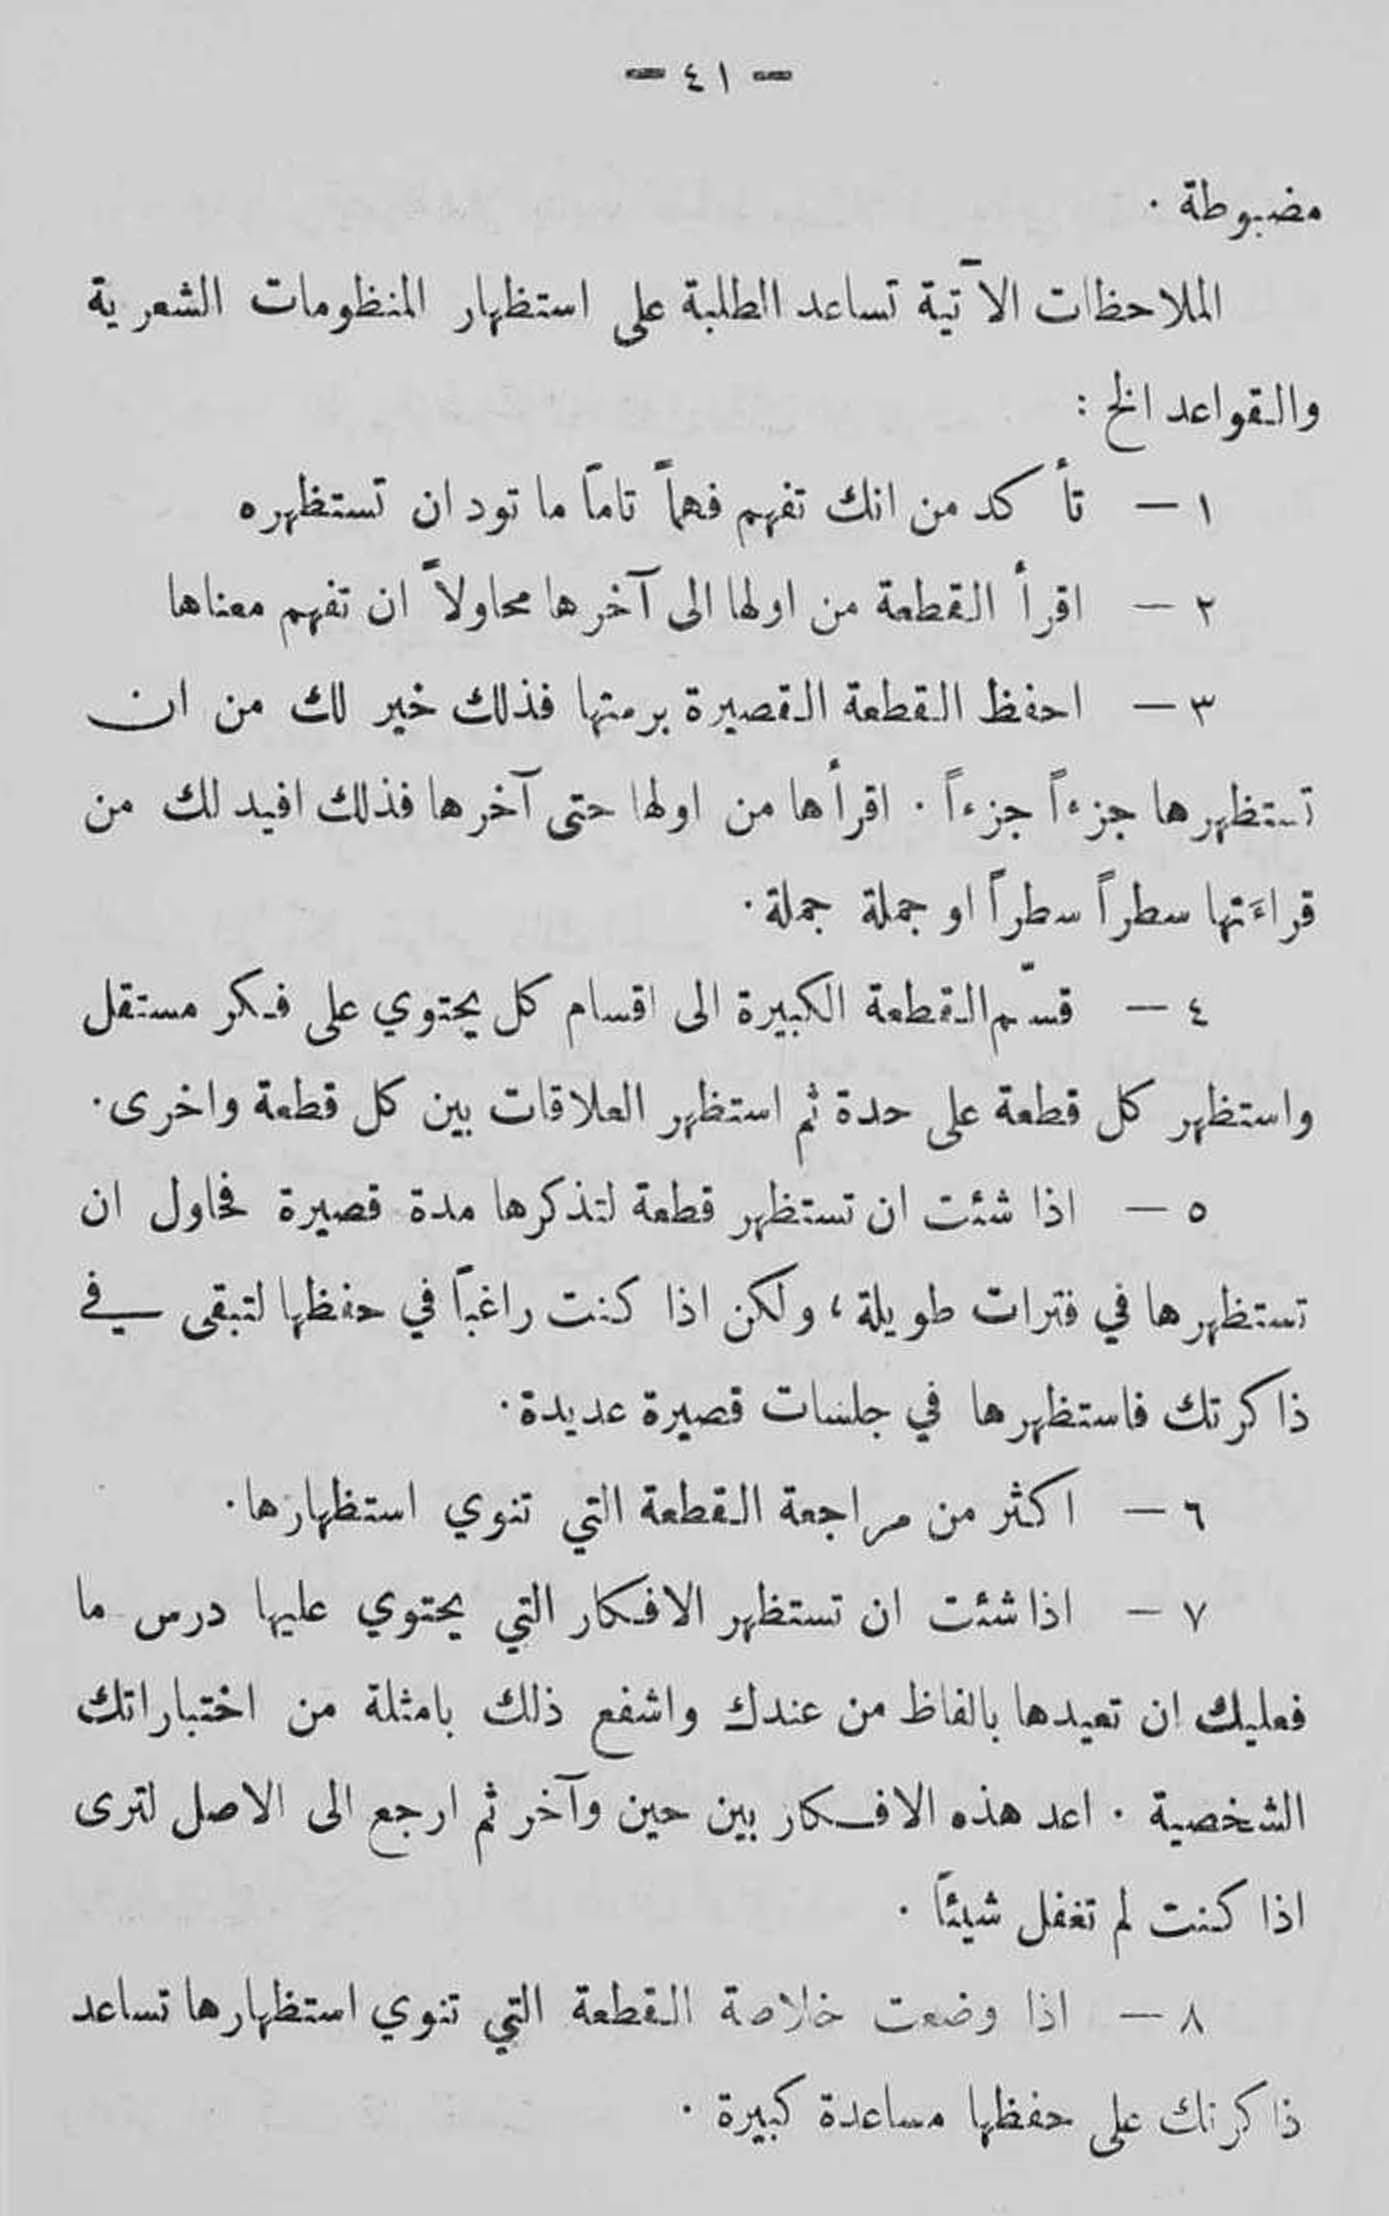 — ٤١ —
مضبوطة ٠
الملاحظات الآتية تساعد الطلبة على استظهار المنظومات الشعرية
والقواعد الخ :
١ — تأكد من انك تفهم فهماً تاماً ما تود ان تستظهره
٢ — اقرأ القطعة من اولها الى آخرها محاولاً ان تفهم معناها
٣ — احفظ القطعة القصيرة برمتها فذلك خير لك من ان
تستظهرها جزءاً جزءاً ٠ اقرأها من اولها حتى آخرها فذلك افيد لك من
قراءَتها سطراً سطراً او جملة جملة ٠
٤ — قسّم القطعة الكبيرة الى اقسام كل يحتوي على فكر مستقل
واستظهر كل قطعة على حدة ثم استظهر العلاقات بين كل قطعة واخرى ٠
٥ — اذا شئت ان تستظهر قطعة لتذكرها مدة قصيرة فحاول ان
تستظهرها في فترات طويلة ، ولكن اذا كنت راغباً في حفظها لتبقى في
ذاكرتك فاستظهرها في جلسات قصيرة عديدة ٠
٦ — اكثر من مراجعة القطعة التي تنوي استظهارها ٠
٧ — اذا شئت ان تستظهر الافكار التي يحتوي عليها درس ما
فعليك ان تعيدها بالفاظ من عندك واشفع ذلك بامثلة من اختباراتك
الشخصية ٠ اعد هذه الافكار بين حين وآخر ثم ارجع الى الاصل لترى
اذا كنت لم تغفل شيئاً ٠
٨ — اذا وضعت خلاصة القطعة التي تنوي استظهارها تساعد
ذاكرتك على حفظها مساعدة كبيرة ٠